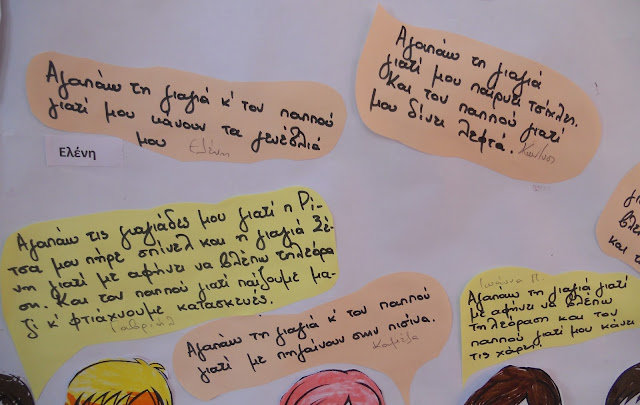 Αγαπάω τη γιαγιά κ' τον παππού
γιατί μου κάνουν τα γενέθλιά
μου Ελένη
Ελένη
Αγαπάω τη γιαγιά
γιατί μου παίρνει τσίχλες.
Και τον παππού γιατί
μου δίνει λεφτά.
Αγαπάω τις γιαγιάδες μου γιατί η Ρί-
τσα μου πήρε σπίνελ και η γιαγιά Ζέ-
νη γιατί με αφήνει να βλέπω τηλεόρα-
ση. Και τον παππού γιατί παίζουμε μα-
ζί κ' φτιάχνουμε κατασκευές.
Γαβριήλ
Αγαπάω τη γιαγιά κ' τον παππού
γιατί με πηγαίνουν στην πισίνα.
Ιωάννα Π.
Αγαπάω τη γιαγιά γιατί
με αφήνει να βλέπω
τηλεόραση και τον
παππού γιατί μου κάνει
τις χάρες